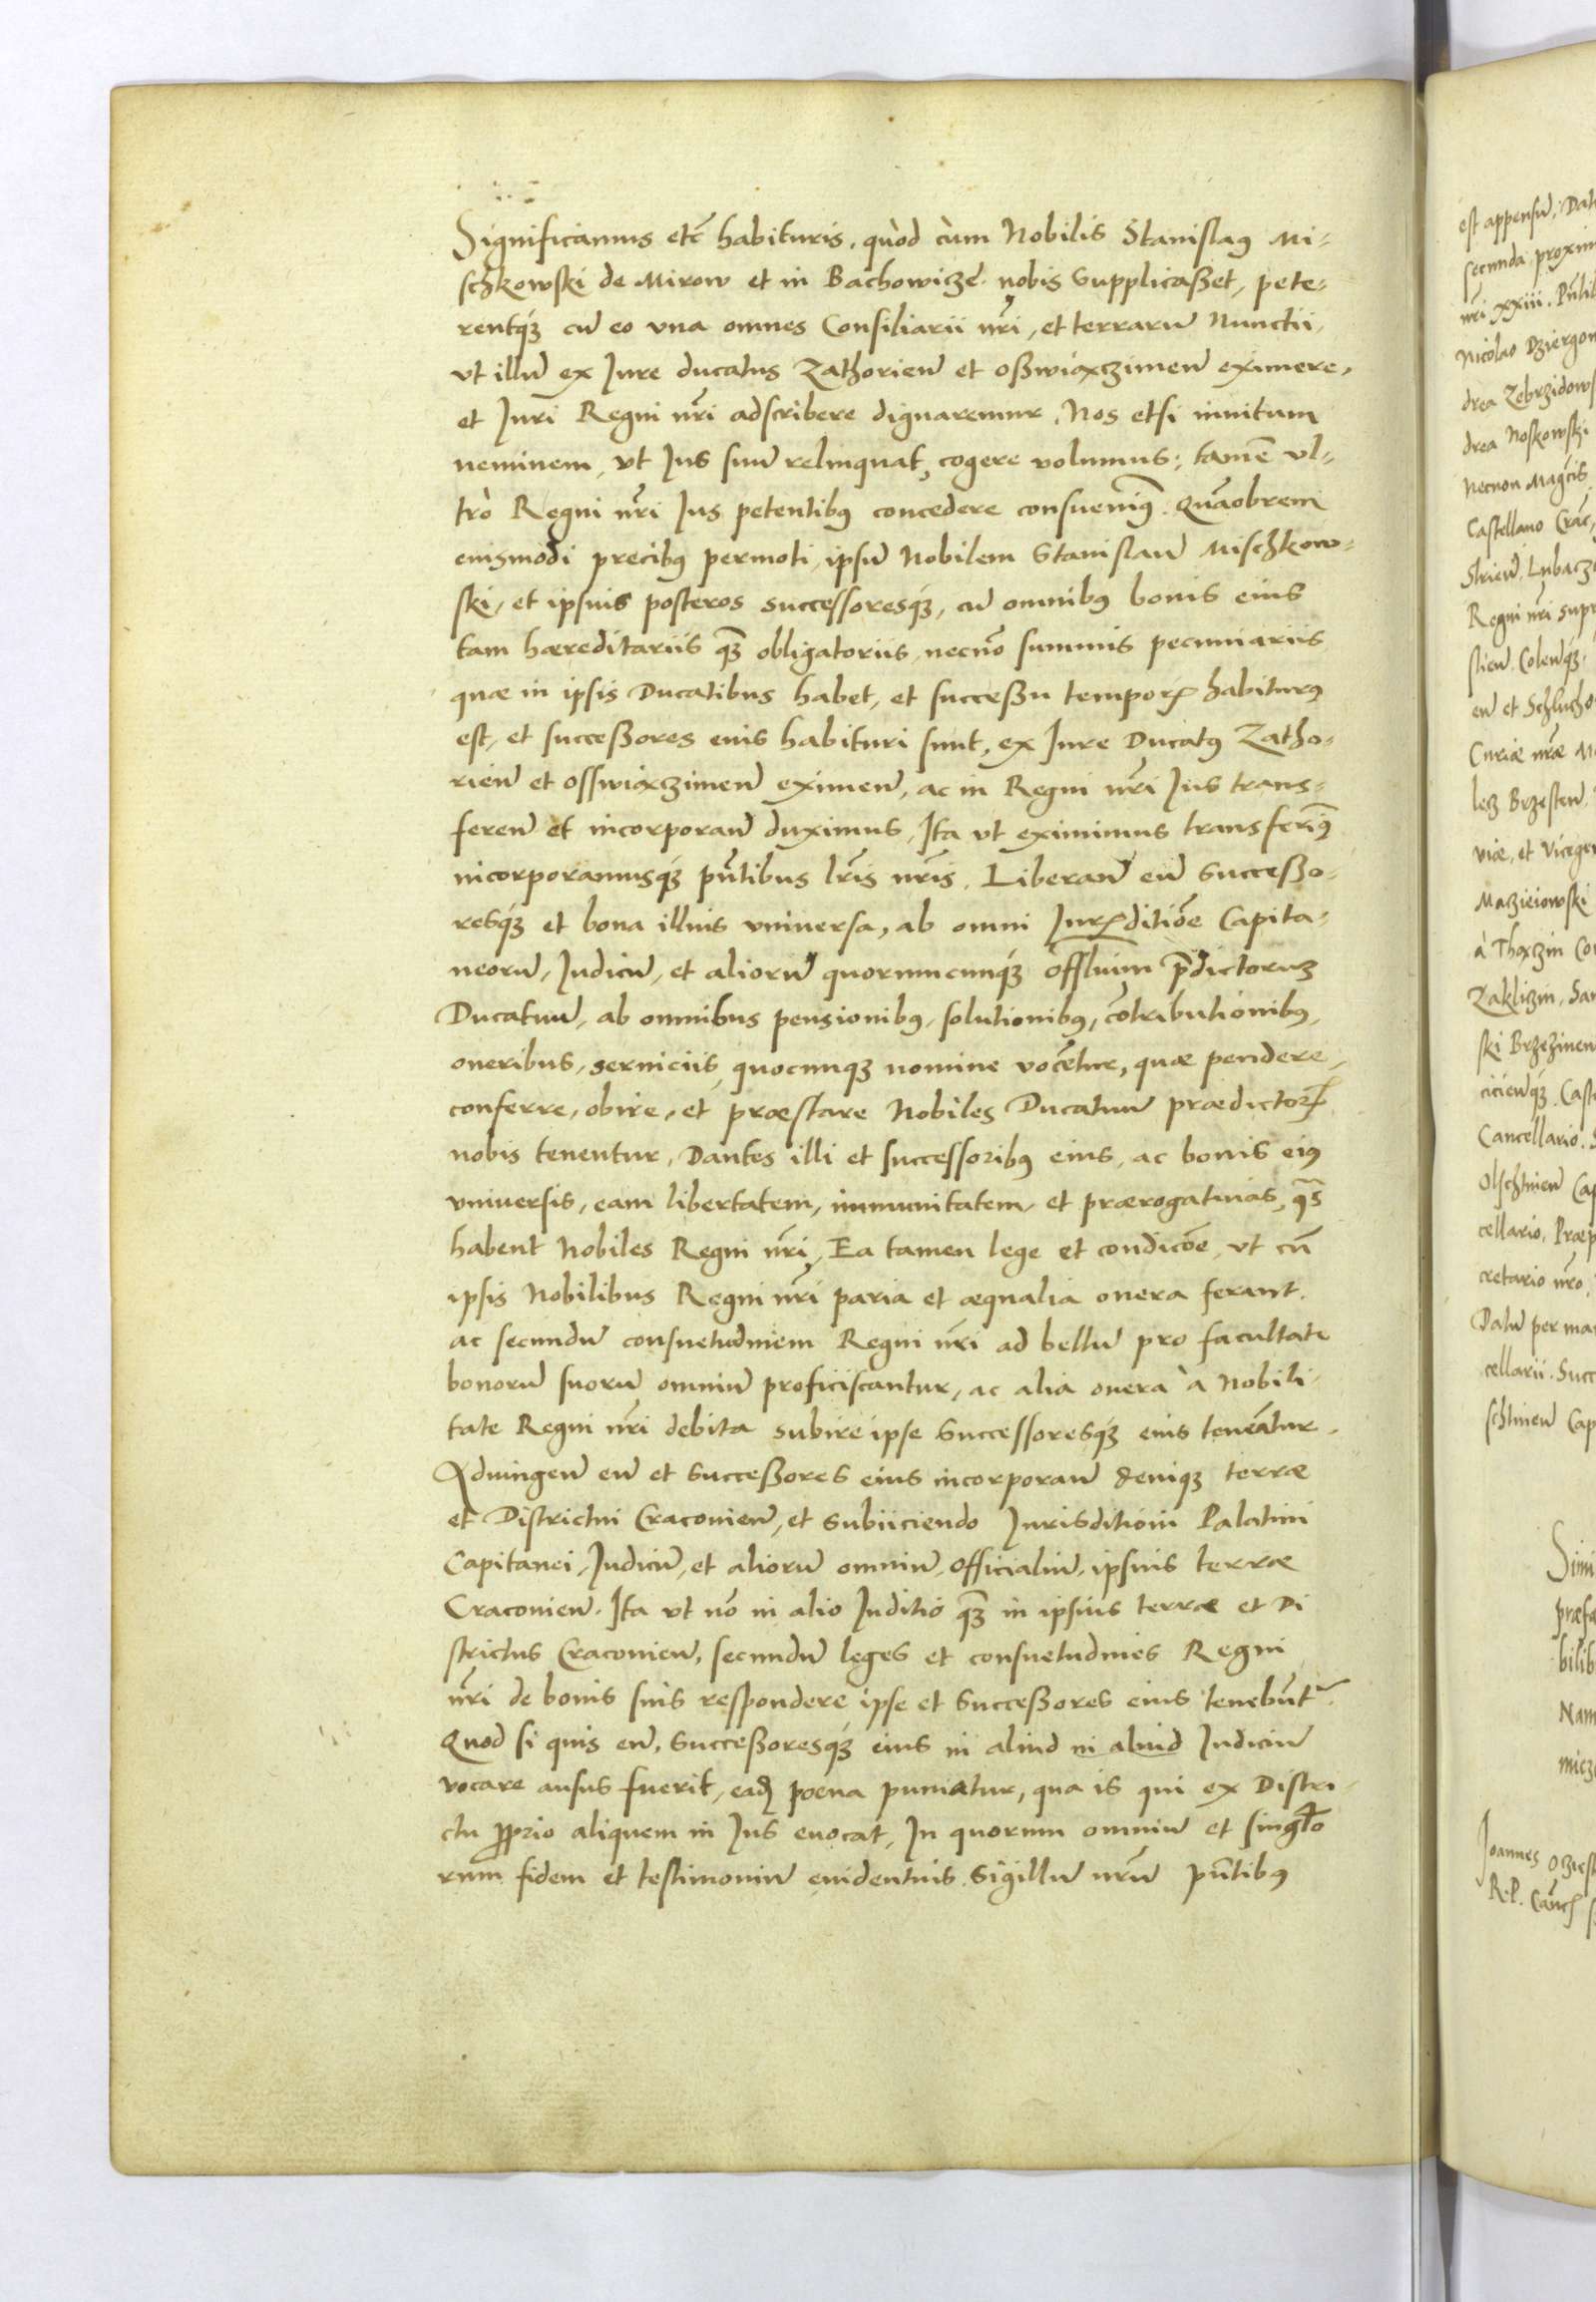 Significamus etc̃ habituris, quòd cùm Nobilis Stanislaꝰ Mi-
schkowski de Mirow et in Bachowicze nobis Supplicaßet, pete-
rentqꝫ cũ eo vna omnes Consiliarii nr̃i, et terrarũ Nunctii,
vt illũ ex Jure ducatus Zathorieñ et oßwiączimeñ eximere,
et Juri Regni nr̃i adscribere dignaremur, Nos etsi inuitum
neminem, vt Jus suũ relinquat, cogere volumus; tamẽ vl-
trò Regni nr̃i Jus petentibꝰ concedere consueuimꝰ. Quãobrem
eiusmodi precibꝰ permoti, ipsũ Nobilem Stanislaũ Mischkow-
ski, et ipsius posteros successoresqꝫ, cũ omnibꝰ bonis eius
tam hæreditariis qꝫ̃ obligatoriis, necnõ summis pecuniariis
quæ in ipsis Ducatibus habet, et succeßu temporꝭ habiturꝰ
est, et succeßores eius habituri sunt, ex Jure Ducatꝰ Zatho-
rieñ et osswiączimeñ eximeñ, ac in Regni nr̃i Jus trans-
fereñ et incorporañ duximus, Ita vt eximimus transferimꝰ
incorporamusqꝫ pñtibus lr̃is nr̃is. Liberañ eũ Succeßo-
resqꝫ et bona illius vniuersa, ab omni Jurꝭditiõe Capita-
neorũ, Judicũ, et aliorũ quorumcunqꝫ offlium p̃dictorum
Ducatuũ, ab omnibus pensionibꝰ, solutionibꝰ, cõtributionibꝰ,
oneribus, seruiciis, quocunqꝫ nomine vocẽtur, quæ pendere,
conferre, obire, et præstare Nobiles Ducatuũ prædictoꝝ
nobis tenentur, Dantes illi et successoribꝰ eius, ac bonis eiꝰ
vniuersis, eam libertatem, immunitatem, et prærogatiuas, qᵃs
habent Nobiles Regni nr̃i, Ea tamen lege et condicõe, vt cũ
ipsis Nobilibus Regni nr̃i paria et æqualia onera ferant.
ac secundũ consuetudinem Regni nr̃i ad bellũ pro facultate
bonorũ suorũ omniũ proficiscantur, ac alia onera à Nobili-
tate Regni nr̃i debita subire ipse Successoresqꝫ eius teneãtur.
Adiungeñ eũ et Succeßores eius incorporañ deniqꝫ terræ
et Districtui Cracovieñ, et subiiciendo Jurisditioni Palatini
Capitanei, Judicũ, et aliorũ omniũ, officialiũ, ipsius terræ
Cracovieñ. Ita vt nõ in alio Juditio qꝫ̃ in ipsius terræ et Di
strictus Cracovieñ, secundũ leges et consuetudines Regni
nr̃i de bonis suis respondere ipse et Succeßores eius tenebũtʳ.
Quod si quis eũ, Succeßoresqꝫ eius in aliud in aliud Judiciũ
vocare ausus fuerit, eadẽ pœna puniatur, qua is qui ex Distri-
ctu ꝓprio aliquem in Jus euocat, In quorum omniũ et singl̃o
rum fidem et testimoniũ euidentius Sigillũ nr̃ũ pñtibꝰ
est appensũ. Dat
secunda proxim
nr̃i xxiii. Pñtib
Nicolao Dziergow
drea Zebrzidows
drea Noskowski
Necnon Magcis
Castellano Crac̃,
Lubacz
Regni nr̃i supr
Coleñqꝫ
eñ et Schlucho
Curiæ nr̃æ Ma
Brzesteñ
viæ, et Viceger
Macieiowski
à Thęczin Co
Zaklizin, San
ski Brzezineñ
cicieñqꝫ. Caste
Cancellario. S
Olschtineñ Cap
cellario, Præp
cretario nr̃o.
Datũ per man
cellarii. Succ
schtineñ Cap
Simi
præfa
bilib
Nam
micz
Joannes Oziesk
R. P. Canc̃